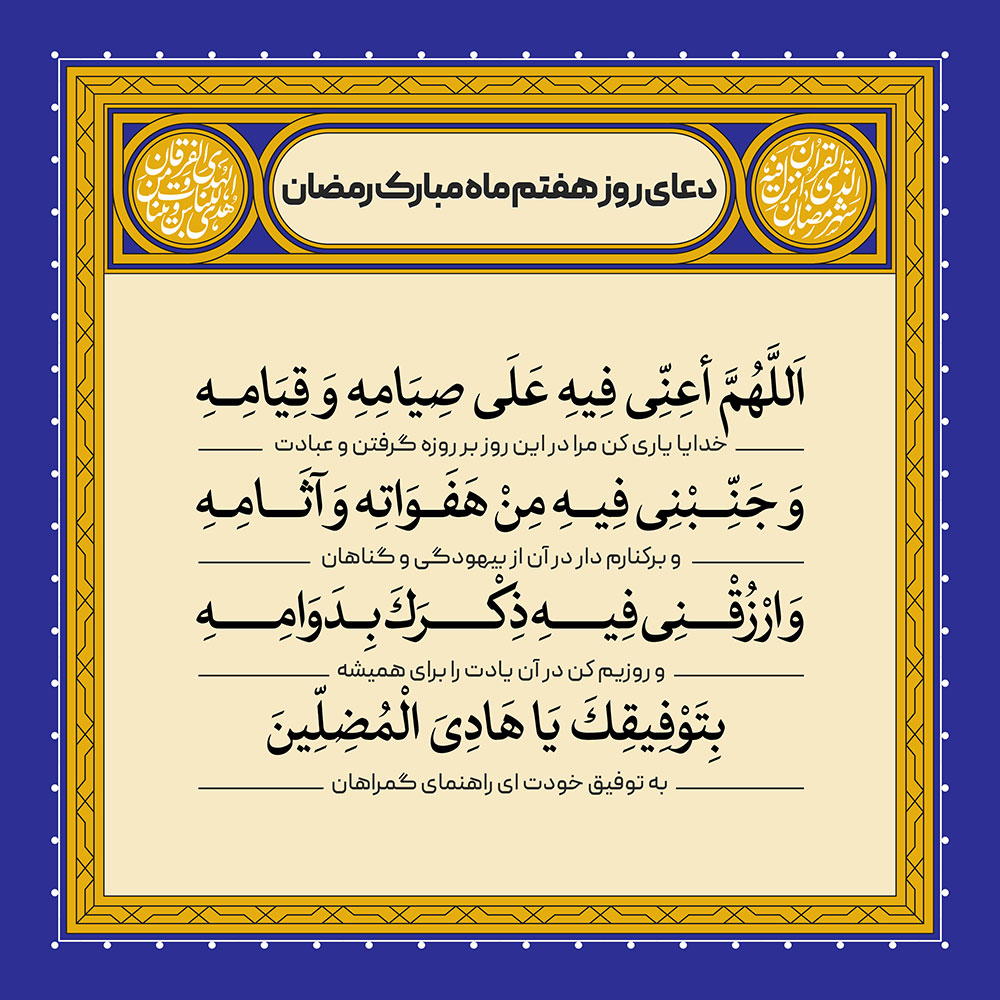 دعای روز هفتم ماه مبارک رمضان
شهر رمضان الذی انزل فیه القرآن
هدی للناس و بینات من الهدی و الفرقان
اَللَّهُمَّ أعِنِّی فِیهِ عَلَی صِیَامِهِ وَ قِیَامِهِ
خدایا یاری کن مرا در این روز بر روزه گرفتن و عبادت
وَ جَنِّبْنِی فِیهِ مِنْ هَفَوَاتِه وَ آثَامِهِ
و برکنارم دار در آن از بیهودگی و گناهان
وَ ارْزُقْنِی فِیهِ ذِکْرَكَ بِدَوَامِهِ
و روزیم کن در آن یادت را برای همیشه
بِتَوْفِیقِكَ یَا هَادِیَ الْمُضِلِّینَ
به توفیق خودت ای راهنمای گمراهان